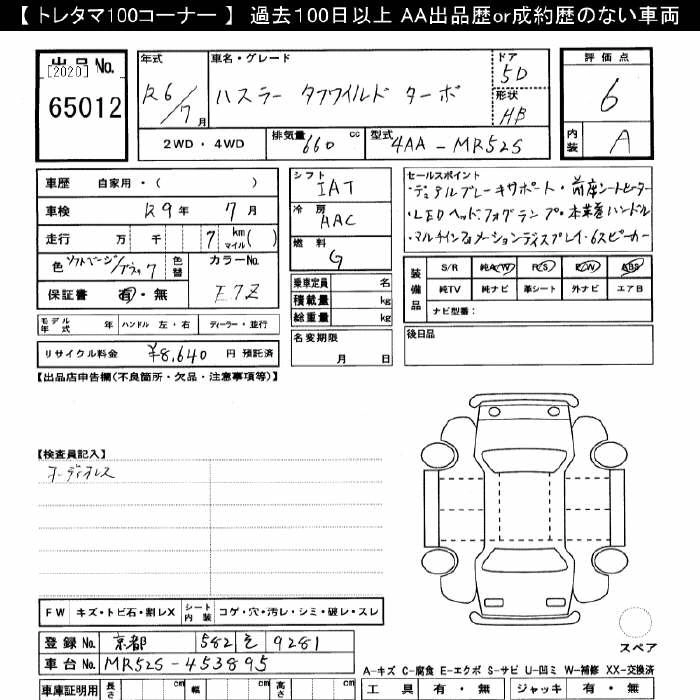 【 トレタマ100コーナー 】 過去100日以上 AA出品歴or成約歴のない車両
出品 No.
[2020]
65012
年式
R6/7月
車名・グレード
ハスラー タフワイルド ターボ
ドア
5D
形状
HB
評価点
6
内装
A
2WD・4WD
排気量 660 cc
型式 4AA-MR52S
車歴 自家用・( )
車検 R9年 7月
走行 万 千 7 km マイル( )
色 ソフトベージュ/ブラック
色替
カラーNo.
E7Z
保証書 有・無
モデル年式 年 ハンドル 左・右 ディーラー・並行
リサイクル料金 ¥8,640 円 預託済
シフト
IAT
冷房
AAC
燃料
G
乗車定員 名
積載量 kg
総重量 kg
名変期限
月 日
セールスポイント
・デュアルブレーキサポート・前席シートヒーター
・LEDヘッド,フォグランプ・本革巻ハンドル
・マルチインフォメーションディスプレイ・6スピーカー
装備品
S/R 純A/W P/S P/W ABS
純TV 純ナビ 革シート 外ナビ エアB
ナビ型番:
後日品
【出品店申告欄(不良箇所・欠品・注意事項等)】
【検査員記入】
オーディオレス
FW キズ・トビ石・割レX シート内装 コゲ・穴・汚レ・シミ・破レ・スレ
登録 No. 京都 582 を 9281
車台 No. MR52S-453895
スペア
車庫証明用 長さ cm 幅 cm 高さ cm
A-キズ C-腐食 E-エクボ S-サビ U-凹ミ W-補修 XX-交換済
工具 有・無 ジャッキ 有・無